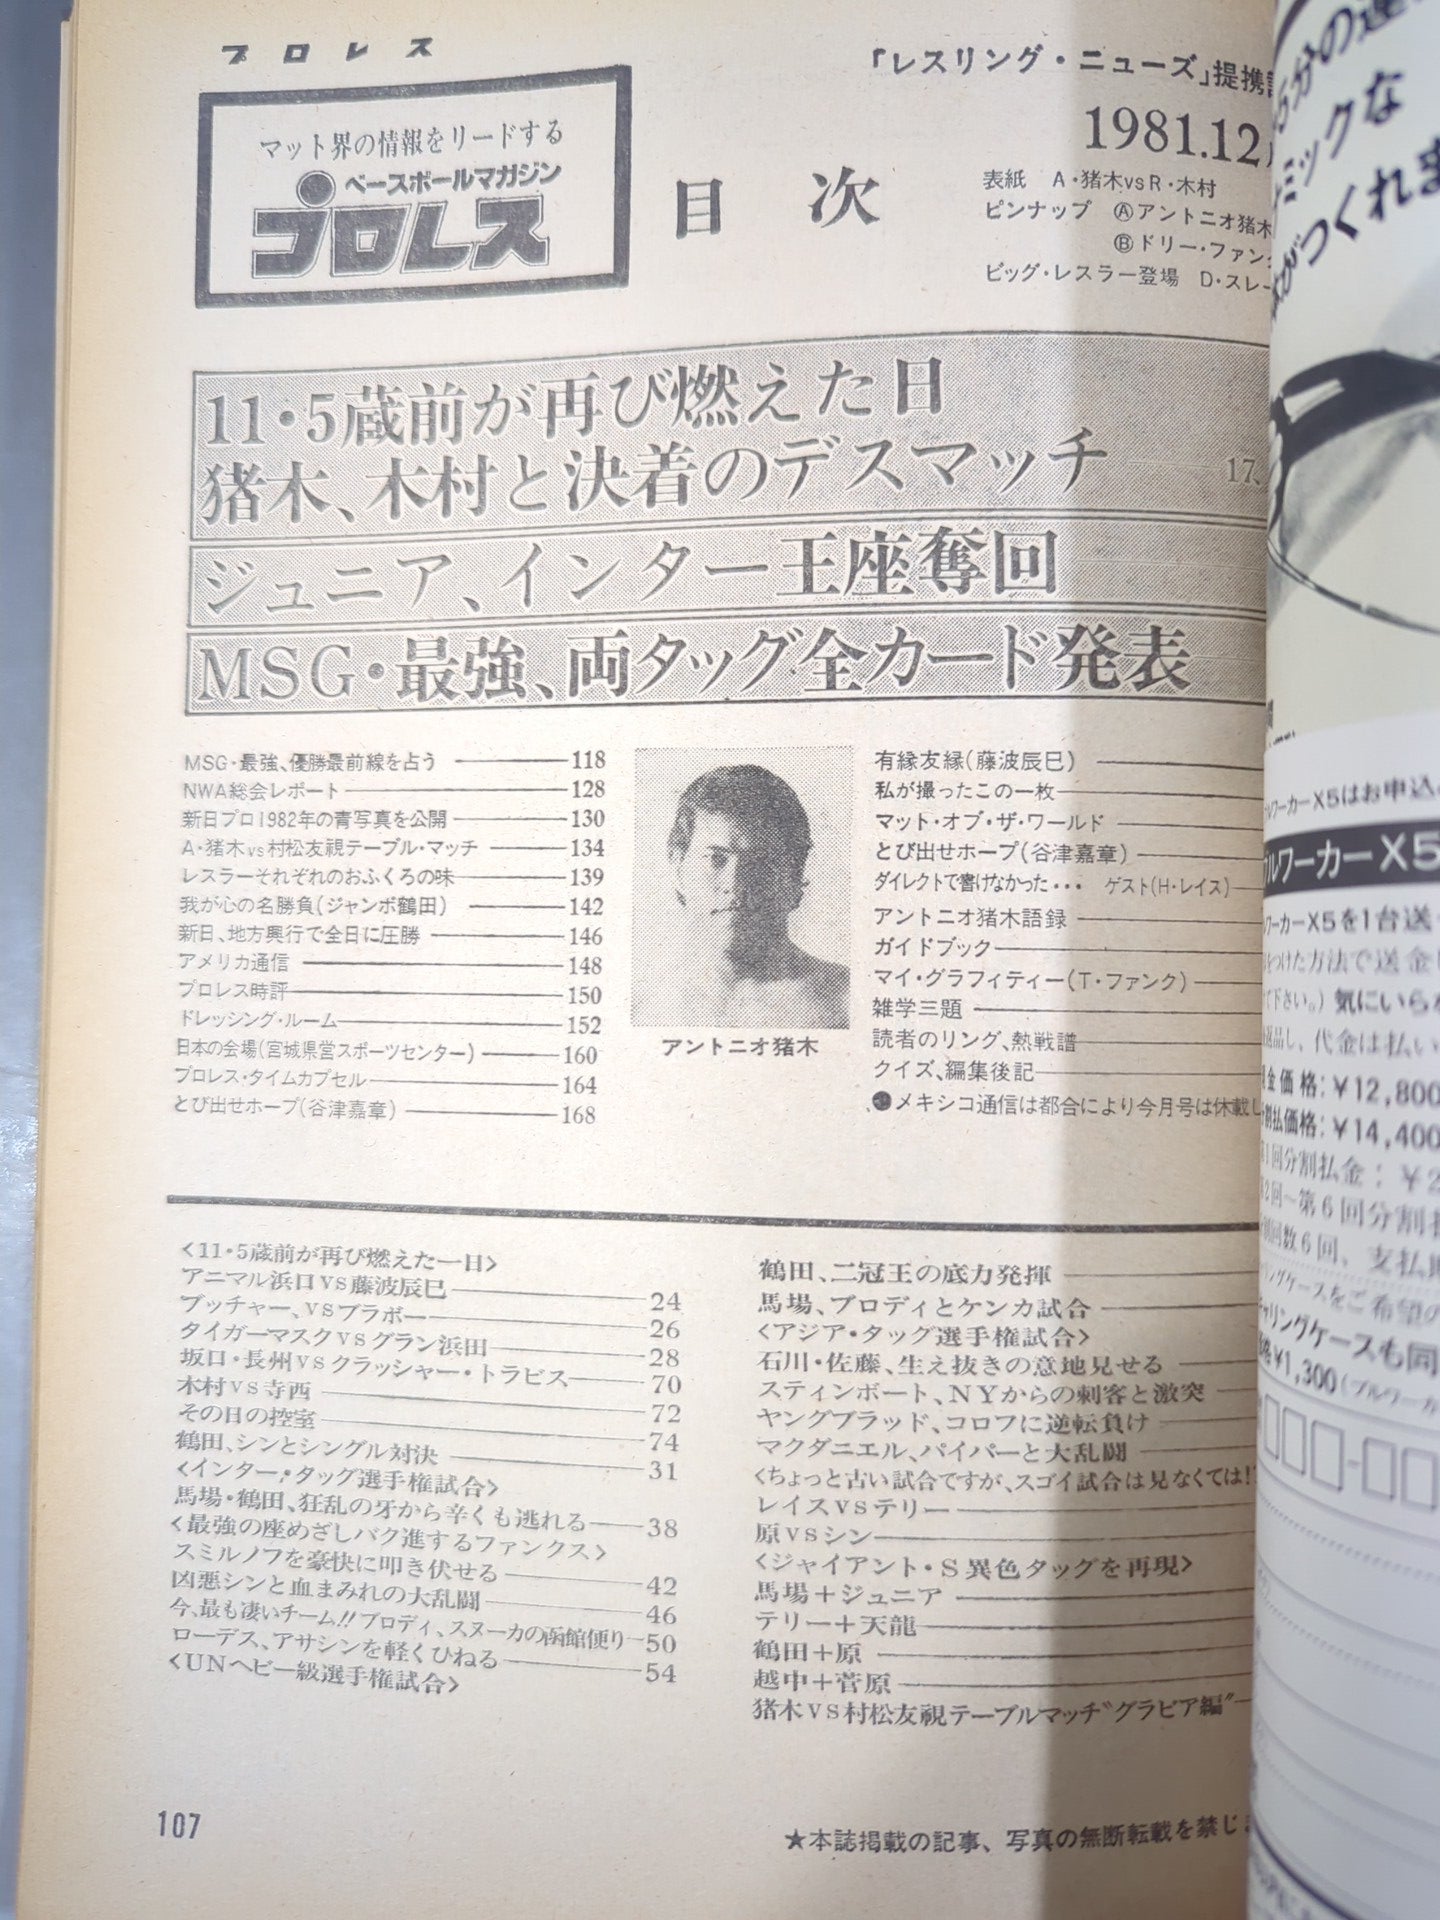 プロレス
「レスリング・ニューズ」提携
マット界の情報をリードする
ベースボールマガジン
プロレス
目次
1981.12
表紙 A・猪木vsR・木村
ピンナップ Ⓐアントニオ猪木
Ⓑドリー・ファン
ビッグ・レスラー登場 D・スレー
11・5蔵前が再び燃えた日
猪木、木村と決着のデスマッチ 17、
ジュニア、インター王座奪回
MSG・最強、両タッグ全カード発表
MSG・最強、優勝最前線を占う 118
NWA総会レポート 128
新日プロ1982年の青写真を公開 130
A・猪木vs村松友視テーブル・マッチ 134
レスラーそれぞれのおふくろの味 139
我が心の名勝負(ジャンボ鶴田) 142
新日、地方興行で全日に圧勝 146
アメリカ通信 148
プロレス時評 150
ドレッシング・ルーム 152
日本の会場(宮城県営スポーツセンター) 160
プロレス・タイムカプセル 164
とび出せホープ(谷津嘉章) 168
アントニオ猪木
有縁友縁(藤波辰巳)
私が撮ったこの一枚
マット・オブ・ザ・ワールド
とび出せホープ(谷津嘉章)
ダイレクトで書けなかった・・・ ゲスト(H・レイス)
アントニオ猪木語録
ガイドブック
マイ・グラフィティー(T・ファンク)
雑学三題
読者のリング、熱戦譜
クイズ、編集後記
●メキシコ通信は都合により今月号は休載し
<11・5蔵前が再び燃えた一日>
アニマル浜口vs藤波辰巳 24
ブッチャー、vsブラボー 26
タイガーマスクvsグラン浜田 28
坂口・長州vsクラッシャー・トラビス 70
木村vs寺西 72
その日の控室 74
鶴田、シンとシングル対決 31
<インター・タッグ選手権試合>
馬場・鶴田、狂乱の牙から辛くも逃れる 38
<最強の座めざしバク進するファンクス>
スミルノフを豪快に叩き伏せる 42
凶悪シンと血まみれの大乱闘 46
今、最も凄いチーム!!ブロディ、スヌーカの函館便り 50
ローデス、アサシンを軽くひねる 54
<UNヘビー級選手権試合>
鶴田、二冠王の底力発揮
馬場、ブロディとケンカ試合
<アジア・タッグ選手権試合>
石川・佐藤、生え抜きの意地見せる
スティンボート、NYからの刺客と激突
ヤングブラッド、コロフに逆転負け
マクダニエル、パイパーと大乱闘
<ちょっと古い試合ですが、スゴイ試合は見なくては!
レイスvsテリー
原vsシン
<ジャイアント・S異色タッグを再現>
馬場+ジュニア
テリー+天龍
鶴田+原
越中+菅原
猪木vs村松友視テーブルマッチ“グラビア編”
107
★本誌掲載の記事、写真の無断転載を禁じ
5分の
ミックな
がつくれま
ルワーカーX5はお申込
ルワーカーX5
ワーカーX5を1台送
をつけた方法で送金し
て下さい。)気にいらな
返品し、代金は払い
金価格:¥12,800
割払価格:¥14,400
第1回分割払金:¥2
第2回〜第6回分割
割回数6回、支払
リングケースをご希望の
ャリングケースも同
¥1,300(ブルワーカ